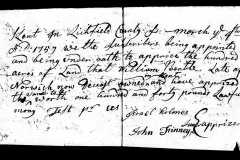 Kent In Litchfield County ss March ye 9th
A:D: 1757 we the Subscribers being appointed
and being under oath to apprize the hundred
acres of Land that William Beattle Late of
Norwich now Deceast owned and have apprized
the same to be
worth one hundred and forty pounds Lawfull
mony Test pr us
Israel Holmes
John Finney
apprizers